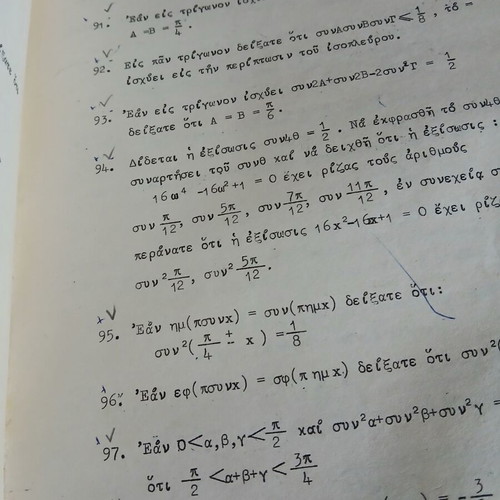 91. Ἐάν εἰς τρίγωνον ἰσχύ
Α =Β = π/4.
92. Εἰς πᾶν τρίγωνον δείξατε ὅτι συνΑσυνΒσυνΓ⩽ 1/8, τό =
ἰσχύει εἰς τήν περίπτωσιν τοῦ ἰσοπλεύρου.
93. Ἐάν εἰς τρίγωνον ἰσχύει συν2Α+συν2Β-2συν²Γ = 1/2
δείξατε ὅτι Α = Β = π/6.
94. Δίδεται ἡ ἐξίσωσις συν4θ = 1/2. Νά ἐκφρασθῆ τό συν4θ
συναρτήσει τοῦ συνθ καί νά δειχθῆ ὅτι ἡ ἐξίσωσις :
16ω⁴ -16ω²+1 = 0 ἔχει ρίζας τούς ἀριθμούς
συν π/12, συν 5π/12, συν 7π/12, συν 11π/12, ἐν συνεχεία σ
περάνατε ὅτι ἡ ἐξίσωσις 16x²-16x+1 = 0 ἔχει ρίζ
συν² π/12, συν² 5π/12.
95. Ἐάν ημ(πσυνx) = συν(πημx) δείξατε ὅτι:
συν²(π/4 ± x) = 1/8
96. Ἐάν εφ(πσυνx) = σφ(π ημx) δείξατε ὅτι συν²(
97. Ἐάν 0<α,β,γ< π/2 καί συν²α+συν²β+συν²γ =
ὅτι π/2 <α+β+γ< 3π/4
) = - 3